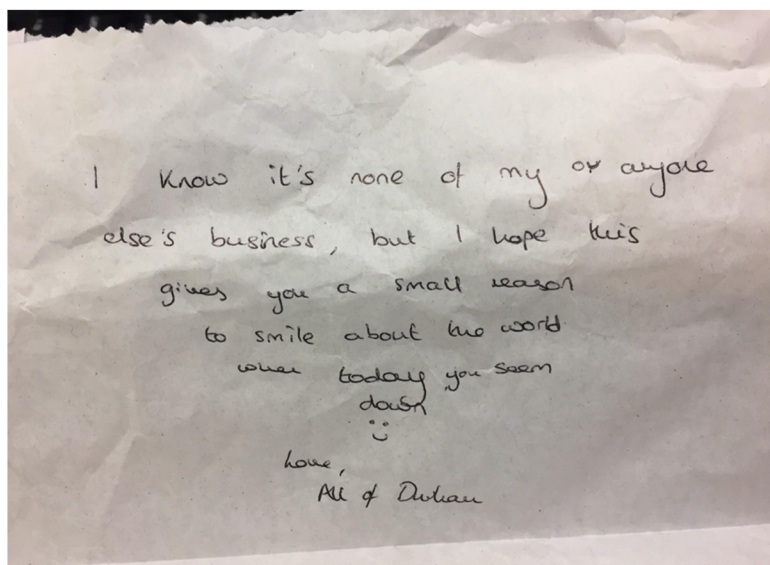 I know it's none of my or anyone
else's business, but I hope this
gives you a small reason
to smile about the world
when today you seem
down
:)
Love,
All of Durham